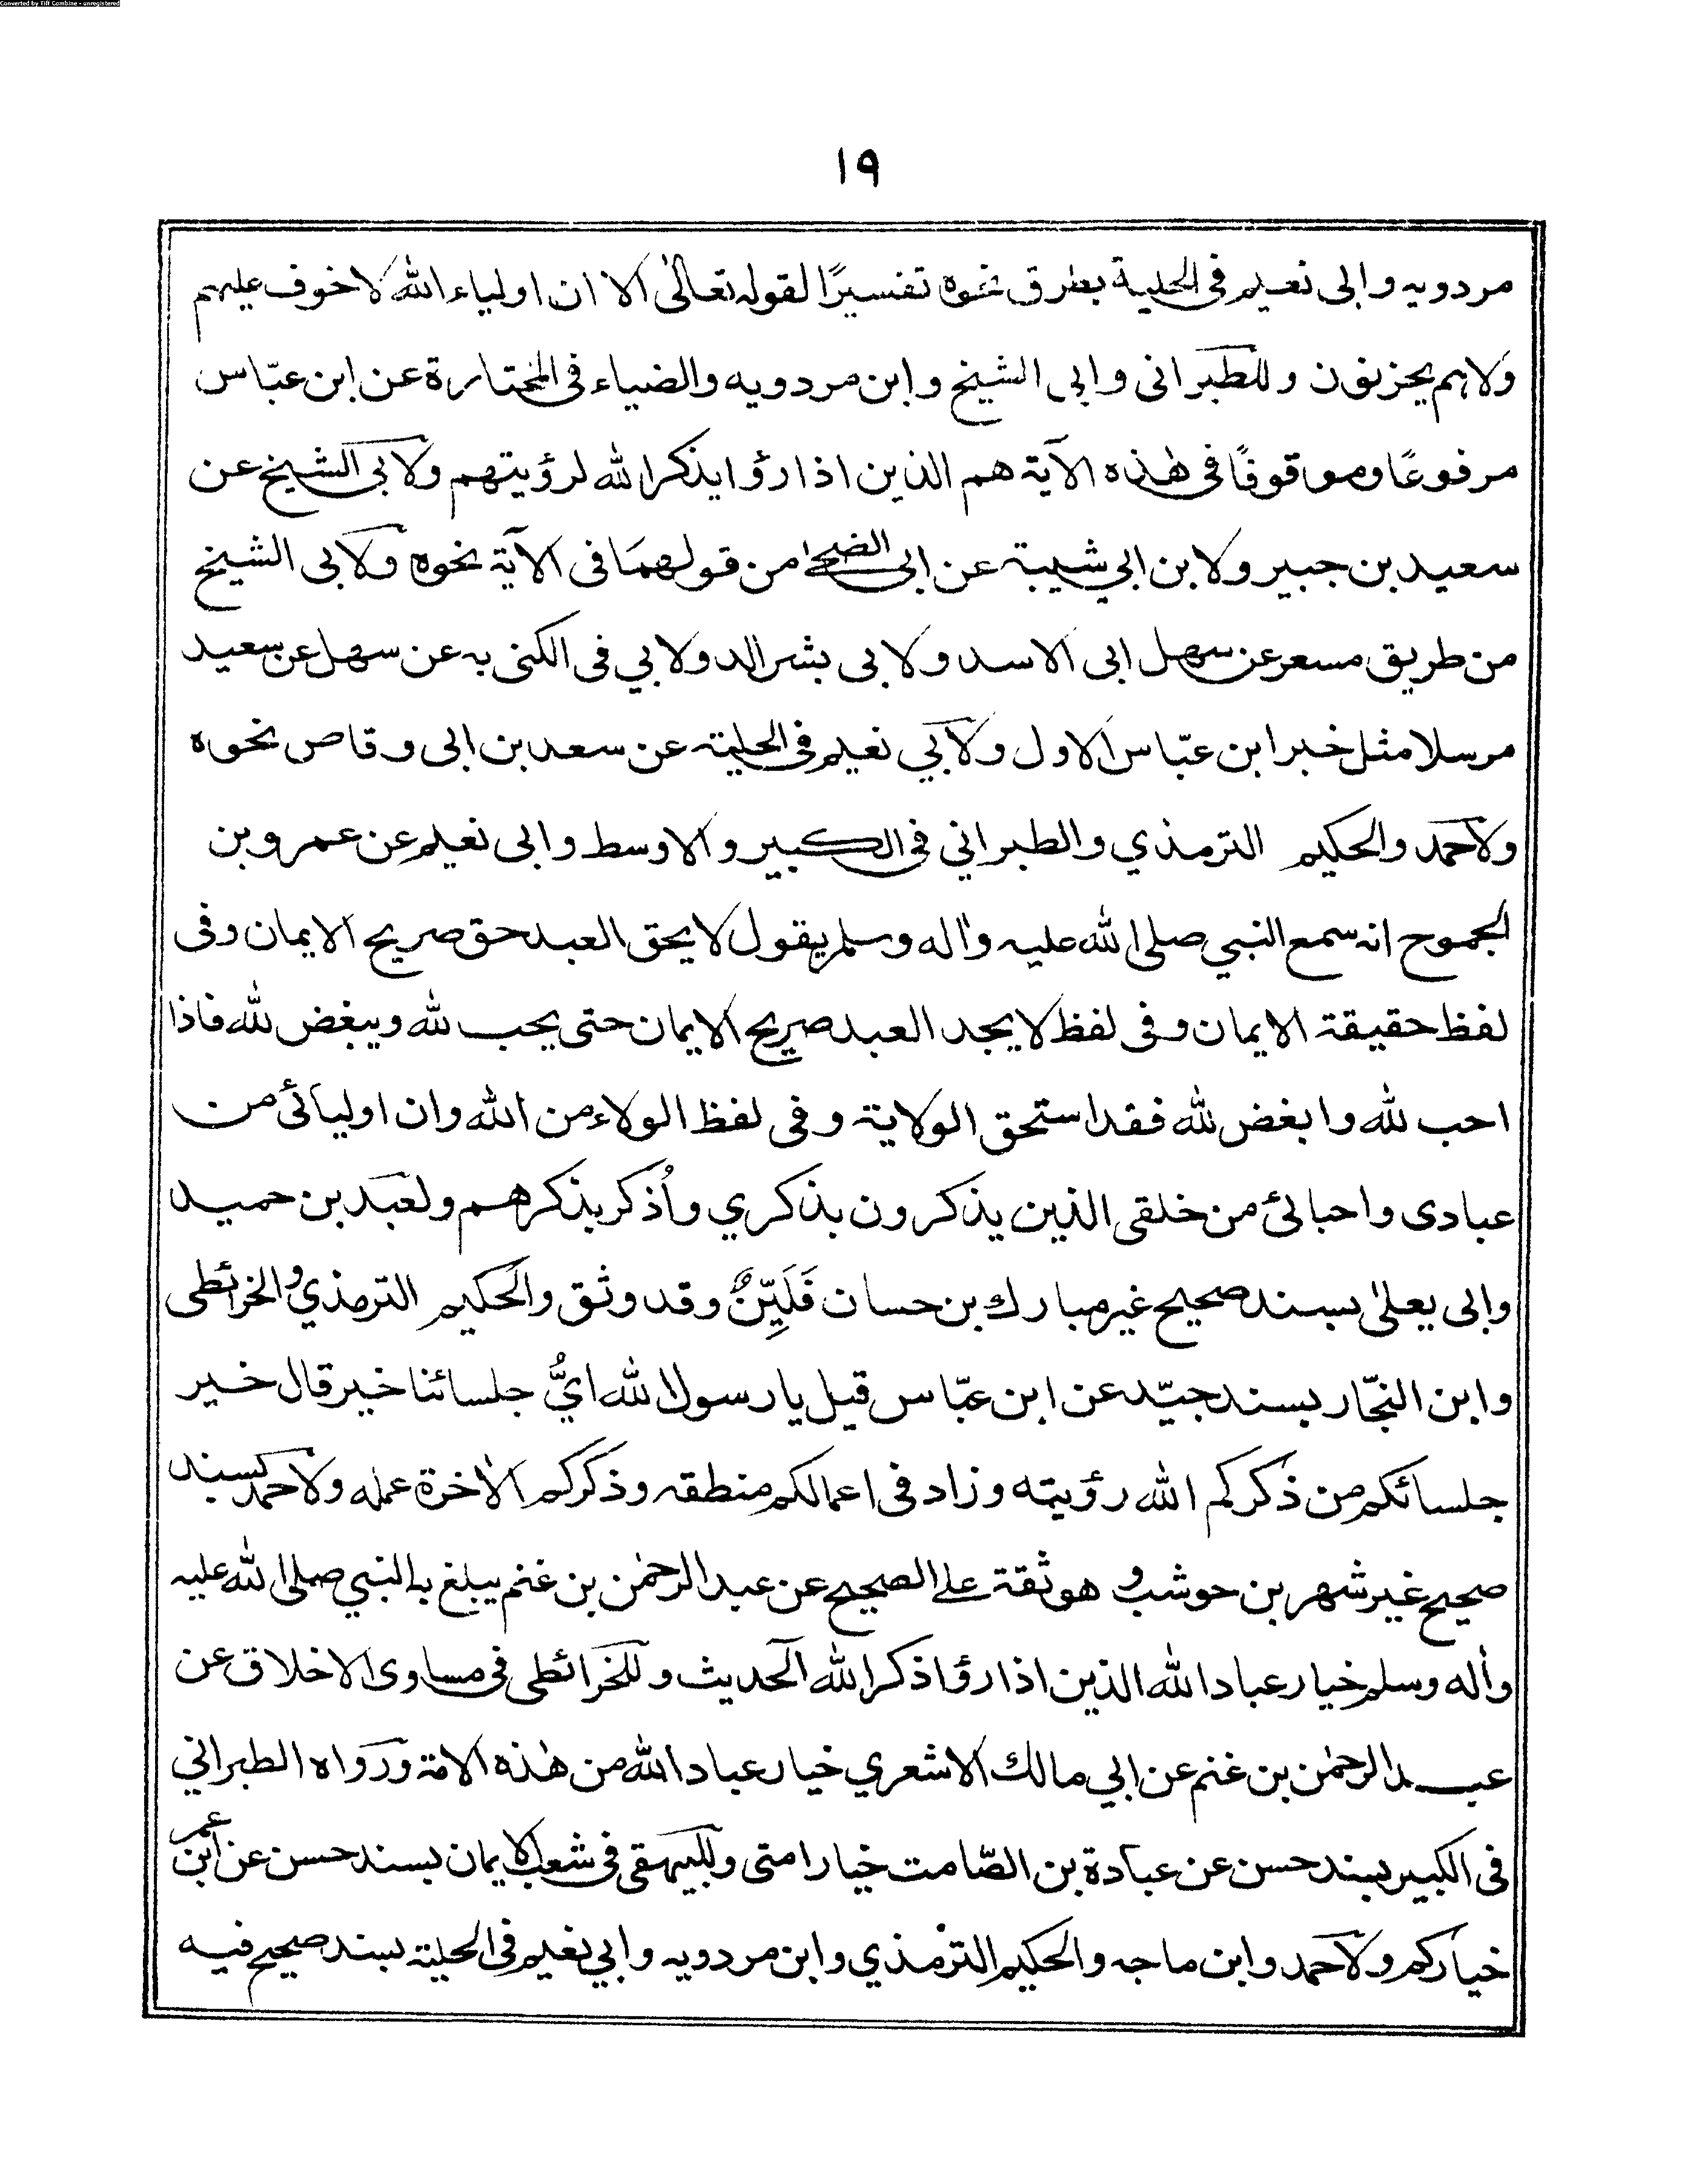 Converted by Tiff Combine - unregistered
١٩
مردويه وابى نعيم فى الحلية بطرق نحوه تفسيرًا لقوله تعالىٰ الا ان اولياء الله لا خوف عليهم
ولاهم يحزنون وللطبرانى وابى الشيخ وابن مردويه والضياء فى المختارة عن ابن عبّاس
مرفوعًا وموقوفًا فى هٰذه الآية هم الذين اذا رؤا يذكر الله لرؤيتهم ولابى الشيخ عن
سعيد بن جبير ولابن ابي شيبة عن ابى الضحىٰ من قولهمَا فى الآية نحوه ولابى الشيخ
من طريق مسعر عن سهل ابى الاسد ولابى بشر الدولابي فى الكنى به عن سهل عن سعيد
مرسلا مثل خبر ابن عبّاس الاول ولابي نعيم فى الحلية عن سعد بن ابى وقاص نحوه
ولاحمد والحكيم الترمذي والطبراني فى الكبير والاوسط وابى نعيم عن عمرو بن
الجموح انه سمع النبي صلى الله عليه واٰله وسلم يقول لا يحق العبد حق صريح الايمان وفى
لفظ حقيقة الايمان وفى لفظ لا يجد العبد صريح الايمان حتى يحب لله ويبغض لله فاذا
احب لله وابغض لله فقد استحق الولاية وفى لفظ الولاء من الله وان اوليائى من
عبادى واحبائى من خلقى الذين يذكرون بذكري واُذكر بذكرهم ولعبد بن حميد
وابى يعلىٰ بسند صحيح غير مبارك بن حسان فَلَيِّنٌ وقد وثق والحكيم الترمذي والخرائطى
وابن النجّار بسند جيّد عن ابن عبّاس قيل يا رسول الله ايُّ جلسائنا خير قال خير
جلسائكم من ذكركم الله رؤيته وزاد فى اعمالكم منطقه وذكركم الاٰخرة عمله ولاحمد بسند
صحيح غير شهر بن حوشب و هو ثقة على الصحيح عن عبد الرحمٰن بن غنم يبلغ به النبي صلى الله عليه
واٰله وسلم خيار عباد الله الذين اذا رؤا ذكر الله الحديث وللخرائطى فى مساوى الاخلاق عن
عبد الرحمٰن بن غنم عن ابي مالك الاشعري خيار عباد الله من هٰذه الامة ورواه الطبراني
فى الكبير بسند حسن عن عبادة بن الصّامت خيار امتى وللبيهقى فى شعب الايمان بسند حسن عن ابن عمر
خياركم ولاحمد وابن ماجه والحكيم الترمذي وابن مردويه وابي نعيم فى الحلية بسند صحيح فيه